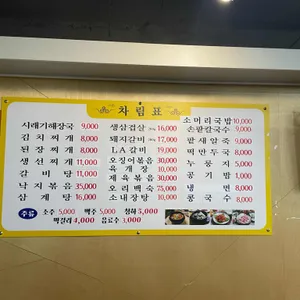 차림표
시래기해장국 9,000
김치찌개 8,000
된장찌개 8,000
생선찌개 11,000
갈비탕 11,000
낙지볶음 35,000
삼계탕 16,000
생삼겹살 16,000
돼지갈비 17,000
LA갈비 19,000
오징어볶음 30,000
육개장 10,000
제육볶음 30,000
오리백숙 75,000
소내장탕 10,000
소머리국밥 10,000
손팥칼국수 9,000
팥새알죽 9,000
떡만두국 8,000
누룽지 5,000
공기밥 1,000
냉면 8,000
콩국수 8,000
주류
소주 5,000 맥주 5,000 청하 5,000
막걸리 4,000 음료수 3,000